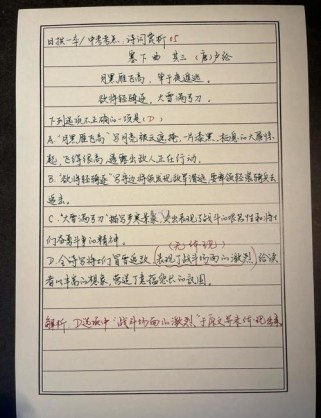 日拱一卒/中考考点,诗词赏析05
塞下曲 其三 (唐)卢纶
月黑雁飞高,单于夜遁逃。
欲将轻骑逐,大雪满弓刀。
下列选项不正确的一项是(D)
A."月黑雁飞高"写月亮被云遮掩,一片漆黑,宿息的大雁惊
起,飞得很高,透露出敌人正在行动。
B."欲将轻骑逐"写守边将领发现敌军潜逃,要率领轻骑骑兵去
追击。
C."大雪满弓刀"描写严寒景象,突出表现了战斗的艰苦性和将士
们奋勇斗争的精神。
(无体现)
D.全诗写将士们冒雪追敌,(表现了战斗场面的激烈)给读
者以丰富的想象,营造了意犹未尽的氛围。
解析:D选项中"战斗场面的激烈"于原文并未体现出来。